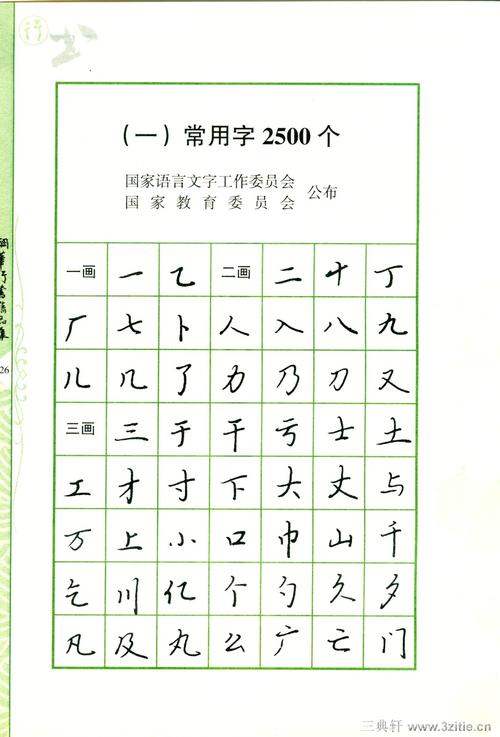 行书
（一）常用字 2500 个
国家语言文字工作委员会
国家教育委员会
公布
一画 一 乙 二画 二 十 丁
厂 七 卜 人 入 八 九
儿 几 了 力 乃 刀 又
三画 三 于 干 亏 士 土
工 才 寸 下 大 丈 与
万 上 小 口 巾 山 千
乞 川 亿 个 勺 久 夕
凡 及 丸 么 广 亡 门
钢笔行书精品集
26
三典轩 www.3zitie.cn